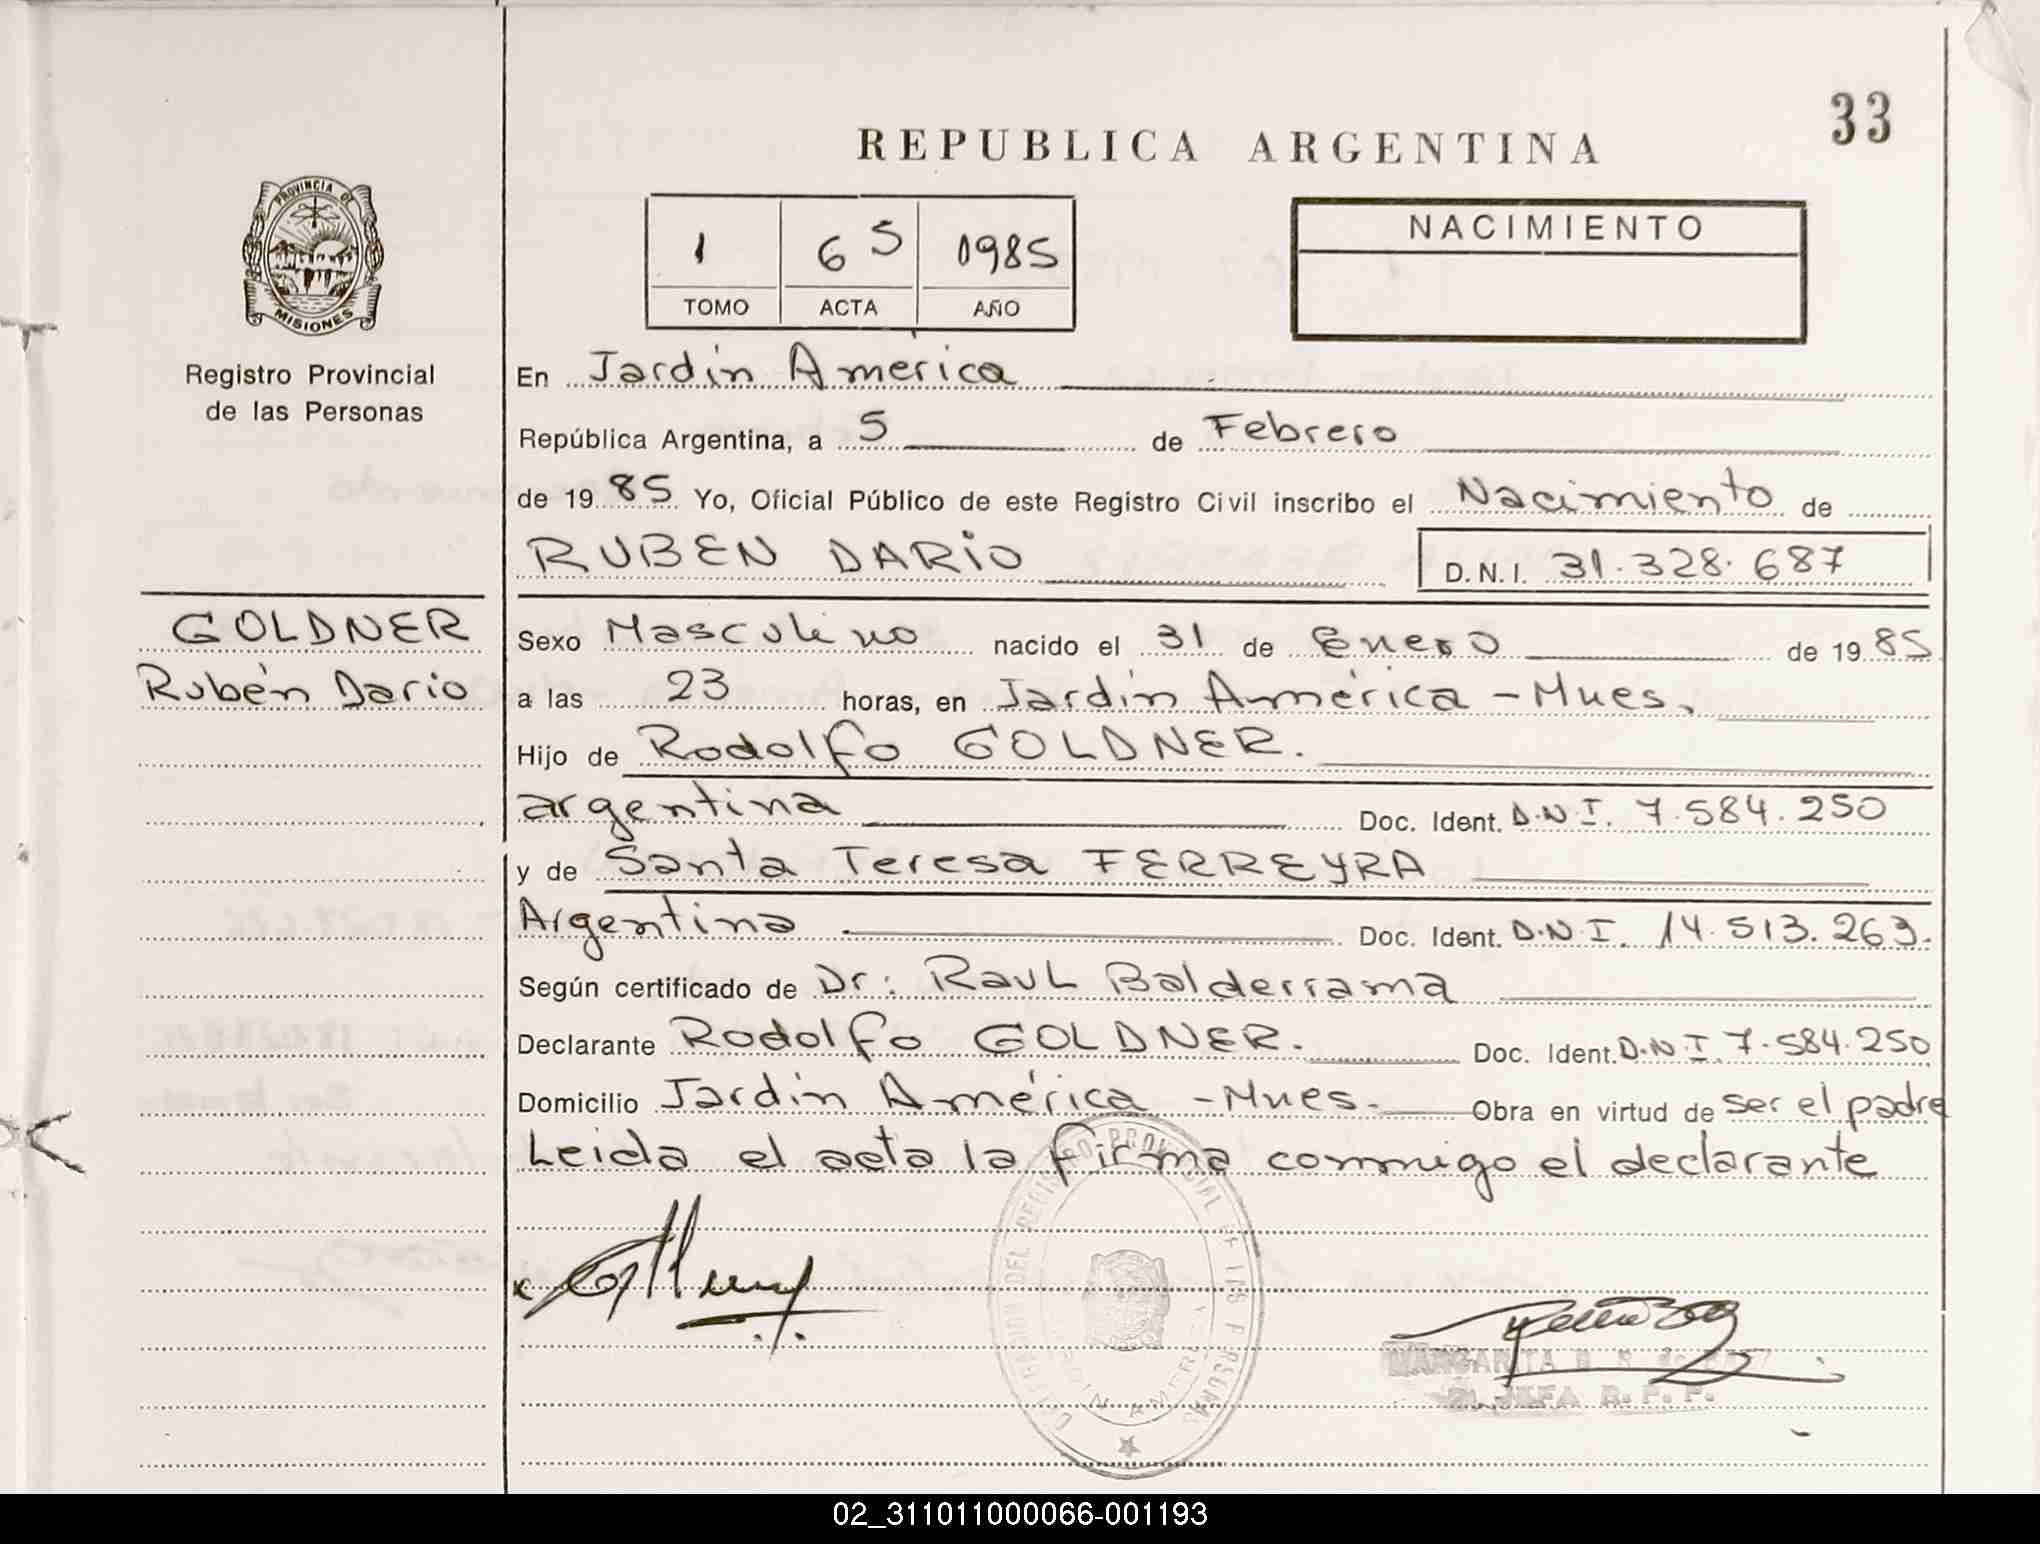 33
REPUBLICA ARGENTINA
PROVINCIA DE
MISIONES
1 65 1985
TOMO ACTA AÑO
NACIMIENTO
Registro Provincial
de las Personas
En Jardín América
República Argentina, a 5 de Febrero
de 1985 Yo, Oficial Público de este Registro Civil inscribo el Nacimiento de
RUBEN DARIO D.N.I. 31.328.687
GOLDNER
Rubén Dario
Sexo Masculino nacido el 31 de Enero de 1985
a las 23 horas, en Jardín América - Mnes.
Hijo de Rodolfo GOLDNER.
argentina Doc. Ident. D.N.I. 7.584.250
y de Santa Teresa FERREYRA
Argentina Doc. Ident. D.N.I. 14.513.263.
Según certificado de Dr: Raul Balderrama
Declarante Rodolfo GOLDNER. Doc. Ident. D.N.I. 7.584.250
Domicilio Jardín América - Mnes. Obra en virtud de ser el padre
Leida el acta la firma conmigo el declarante
DELEGACION DEL REGISTRO PROVINCIAL DE LAS PERSONAS
JARDIN AMERICA
MARGARITA
JEFA R. P. P.
02_311011000066-001193